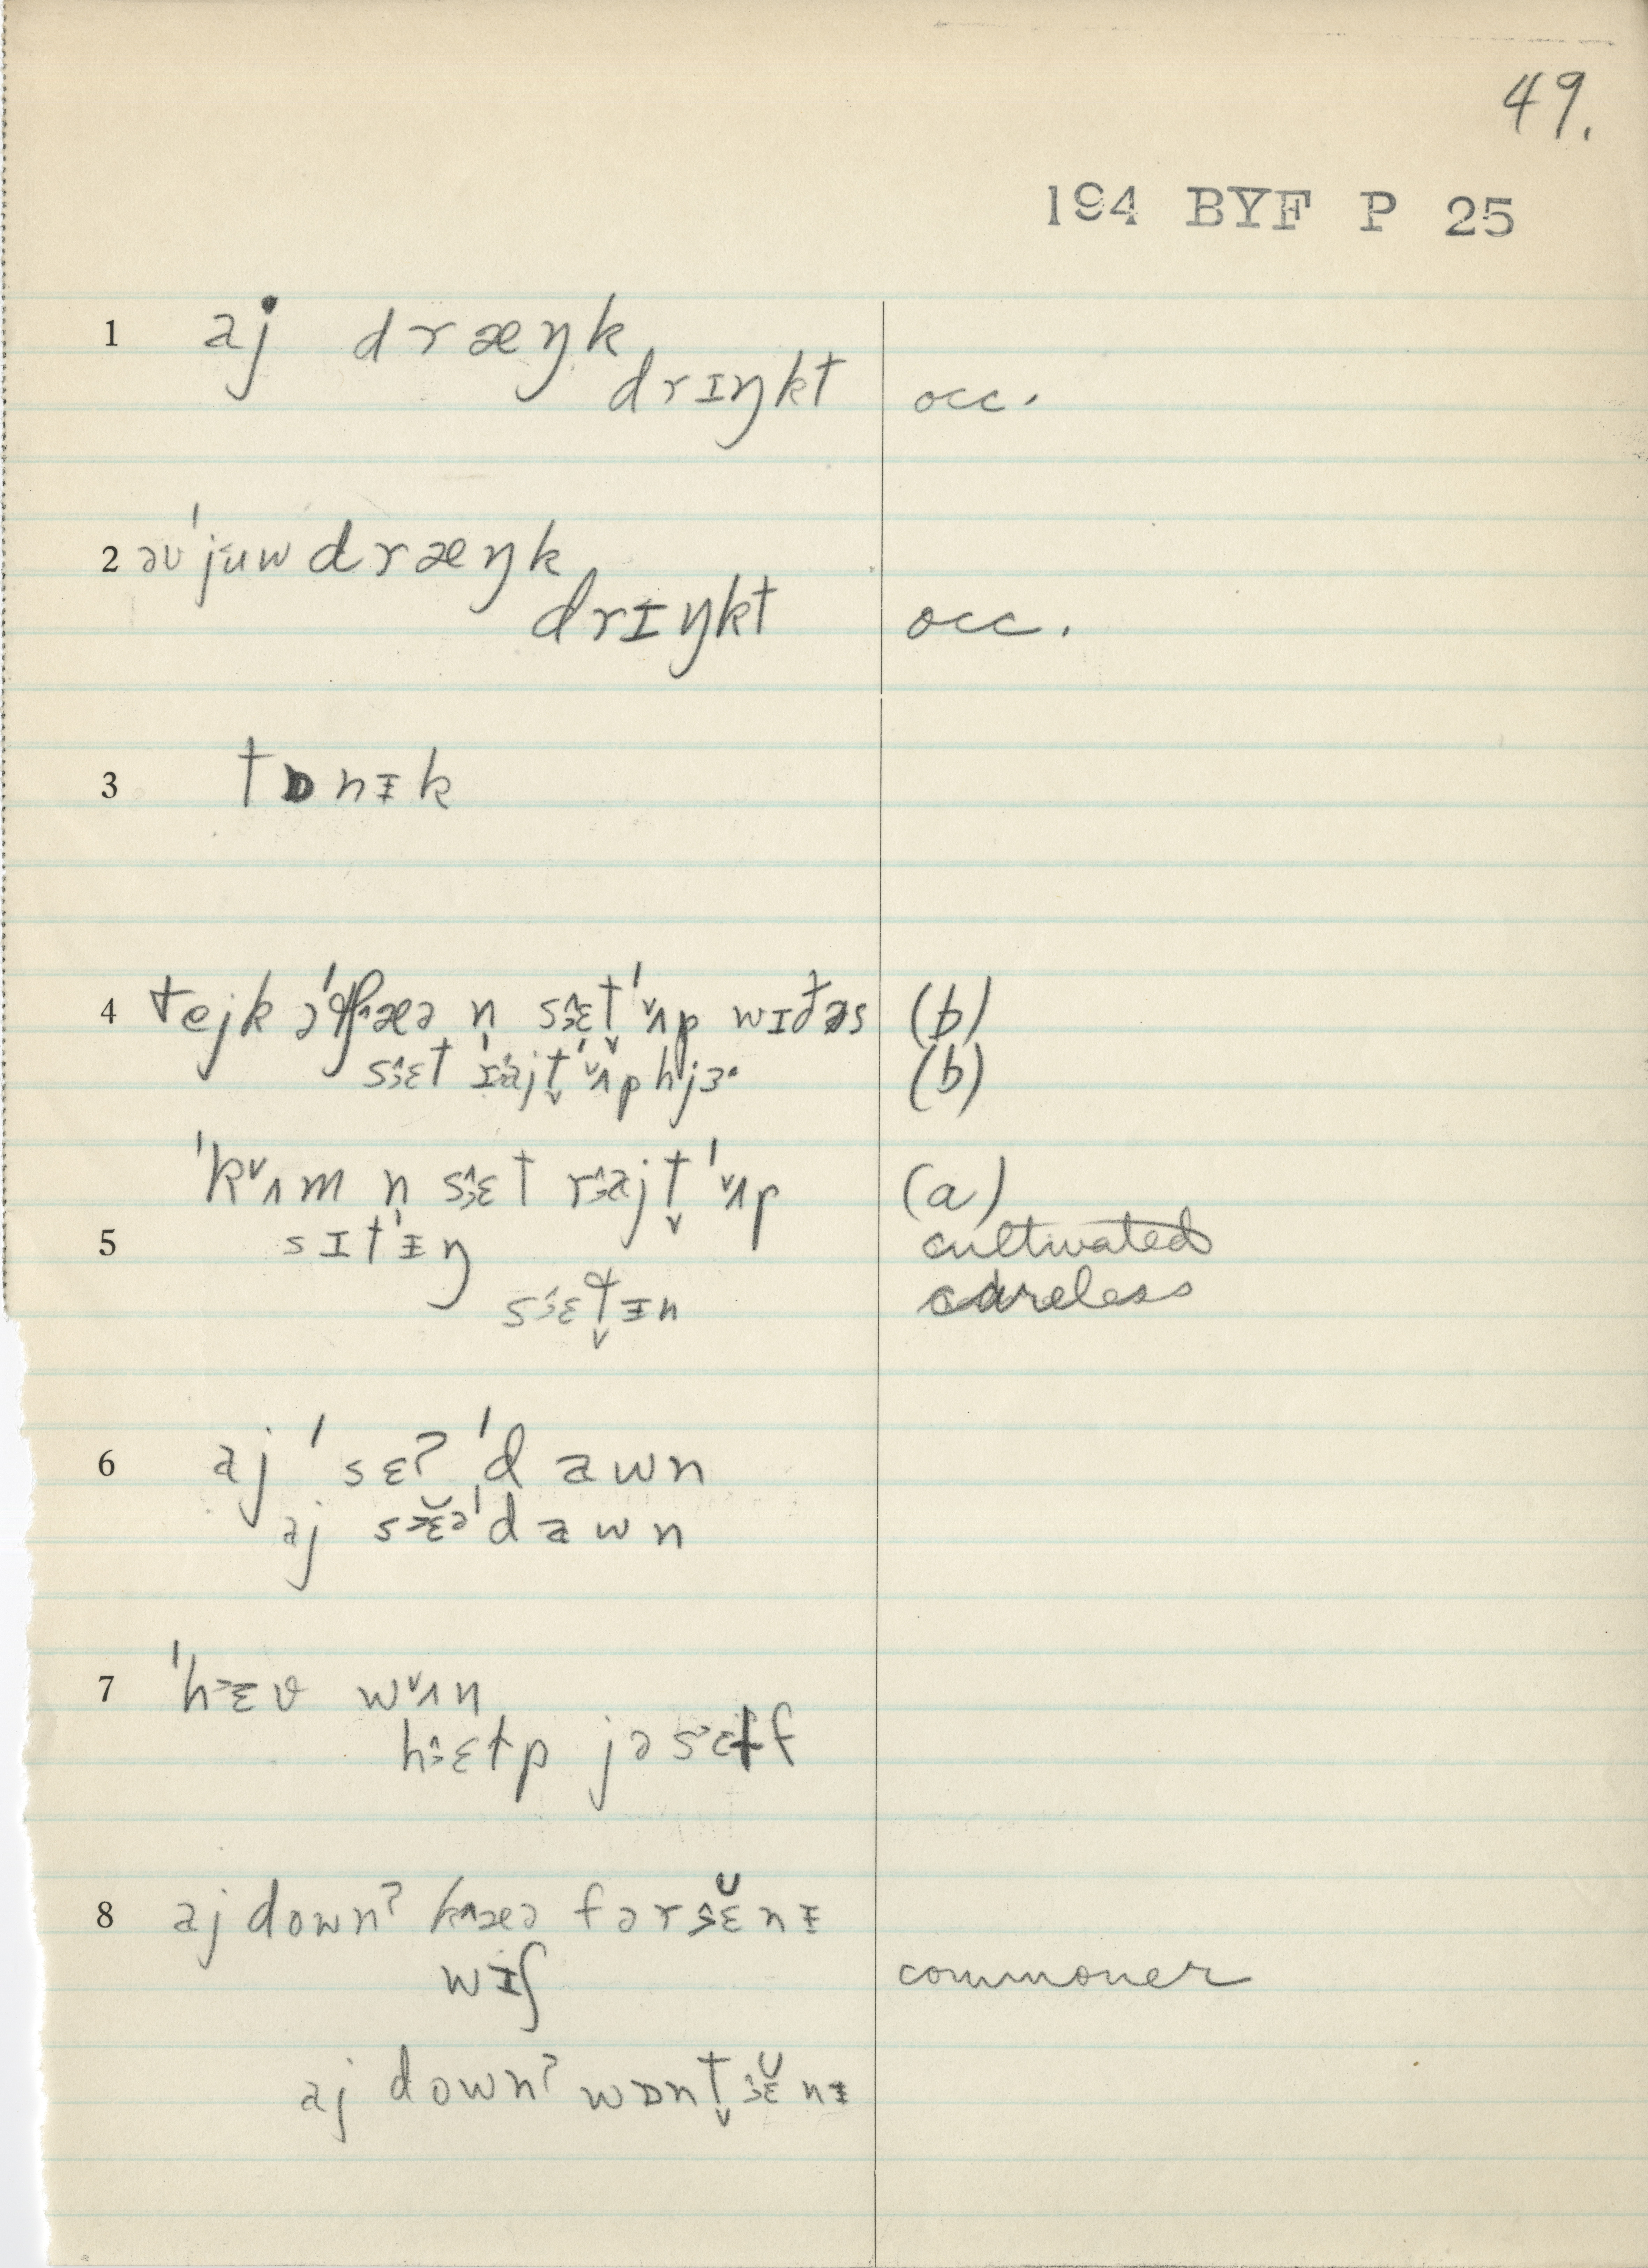 49.
194 BYF P 25
1 aj dræŋk
drɪŋkt occ.
2 əv'juw dræŋk
drɪŋkt occ.
3 tɒnɪk
4 tejk ə n sɛt̬'ʌp wɪðəs (b)
sɛt rajt̬'ʌp hjɜ (b)
'kʌm n sɛt rajt̬'ʌp (a)
5 sɪt'ɪŋ cultivated
sɛt̬ɪn careless
6 aj 'sɛʔ 'dawn
aj sɛ̆ə'dawn
7 'hɛv wʌn
hɛɫp jəsɛɫf
8 aj downʔ kæə fərsɛ̆nɪ
wɪʃ commoner
aj downʔ wɒnt̬ɛ̆nɪ